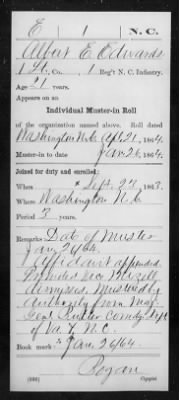 E | 1 | N.C.
Albert E. Edwards
1 Lt., Co. , 1 Reg't N. C. Infantry.
Age 21 years
Appears on an
Individual Muster-in Roll
of the organization named above. Roll dated
Washington N.C. Apl 21, 1864.
Muster-in to date Jan 26, 1864.
Joined for duty and enrolled:
When * Sept. 23, 1863.
Where Washington N.C.
Period 3 years.
Remarks: Date of Muster
Jan 26/64.
Affidavit appended.
Promoted vice Frizell
dismissed, Mustered by
authority from Maj.
Genl Butler Comdg Dept
of Va. & N.C.
Book mark: * Jan. 26/64.
Bogan
(339) Copyist.